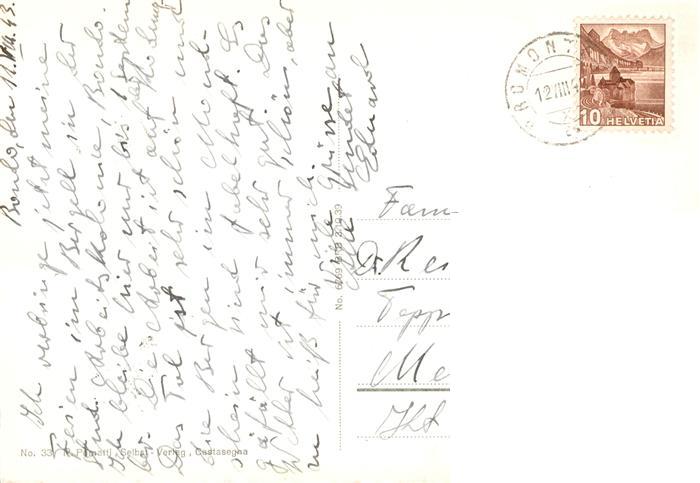 Bondo, den 11. VIII. 43.
Ich verbringe jetzt meine
Ferien im Bergell in der
Stud. Arbeitskolonie, Bondo.
Ich bleibe hier nur bis 1. Septem
ber. Die Arbeit ist auf
Das Tal ist sehr schön und
die Bergen im Mond-
schein sind fabelhaft. Es
gefällt mir sehr gut. Das
Wetter ist immer schön, aber
zu heiß für mich.
Viele Grüsse an
alle sendet
Eduard
Fam-
Dr. Re
Topp
Me
No. 6769 3.10.39
No. 33 R. Pomatti, Selbst-Verlag, Castasegna
PROMONT
12 VIII 4
10 HELVETIA